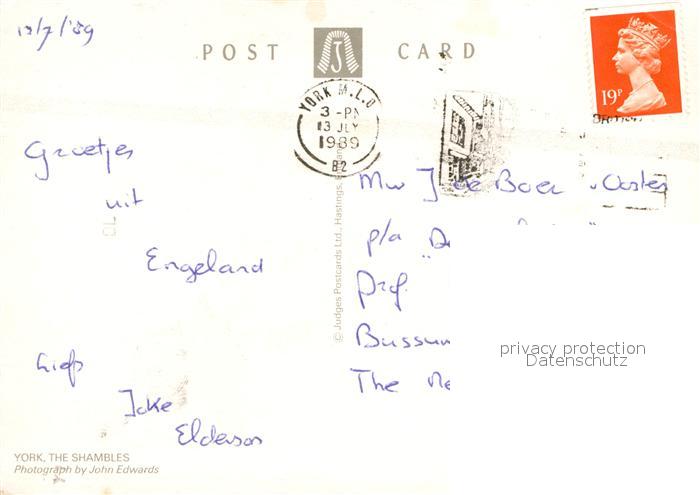 12/7/'89
POST CARD
YORK M.L.O
3 - PM
13 JLY
1989
B2
19P
Groetjes
uit
Engeland
liefs
Elderson
Mw J de Boer - Oosten
p/a "De
Prof.
Bussum
The Ne
privacy protection
Datenschutz
© Judges Postcards Ltd., Hastings,
YORK, THE SHAMBLES
Photograph by John Edwards